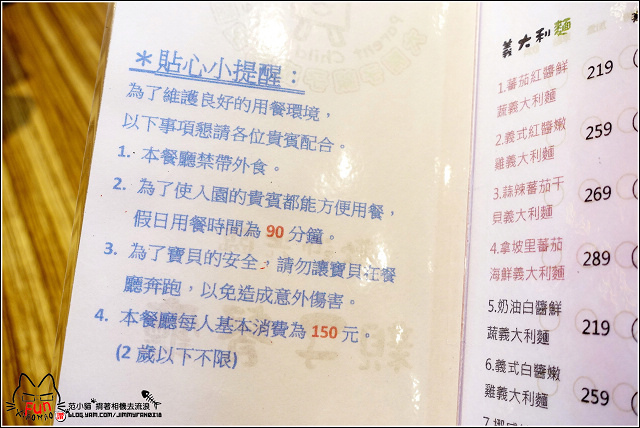 ＊貼心小提醒：
為了維護良好的用餐環境，
以下事項懇請各位貴賓配合。
1. 本餐廳禁帶外食。
2. 為了使入園的貴賓都能方便用餐，
假日用餐時間為 90 分鐘。
3. 為了寶貝的安全，請勿讓寶貝在餐
廳奔跑，以免造成意外傷害。
4. 本餐廳每人基本消費為 150 元。
(2 歲以下不限)
義大利麵
1.蕃茄紅醬鮮 219
蔬義大利麵
2.義式紅醬嫩 259
雞義大利麵
3.蒜辣蕃茄干 269
貝義大利麵
4.拿坡里蕃茄 289
海鮮義大利麵
5.奶油白醬鮮 219
蔬義大利麵
6.義式白醬嫩 259
雞義大利麵
FUN
范小貓 揹著相機去流浪